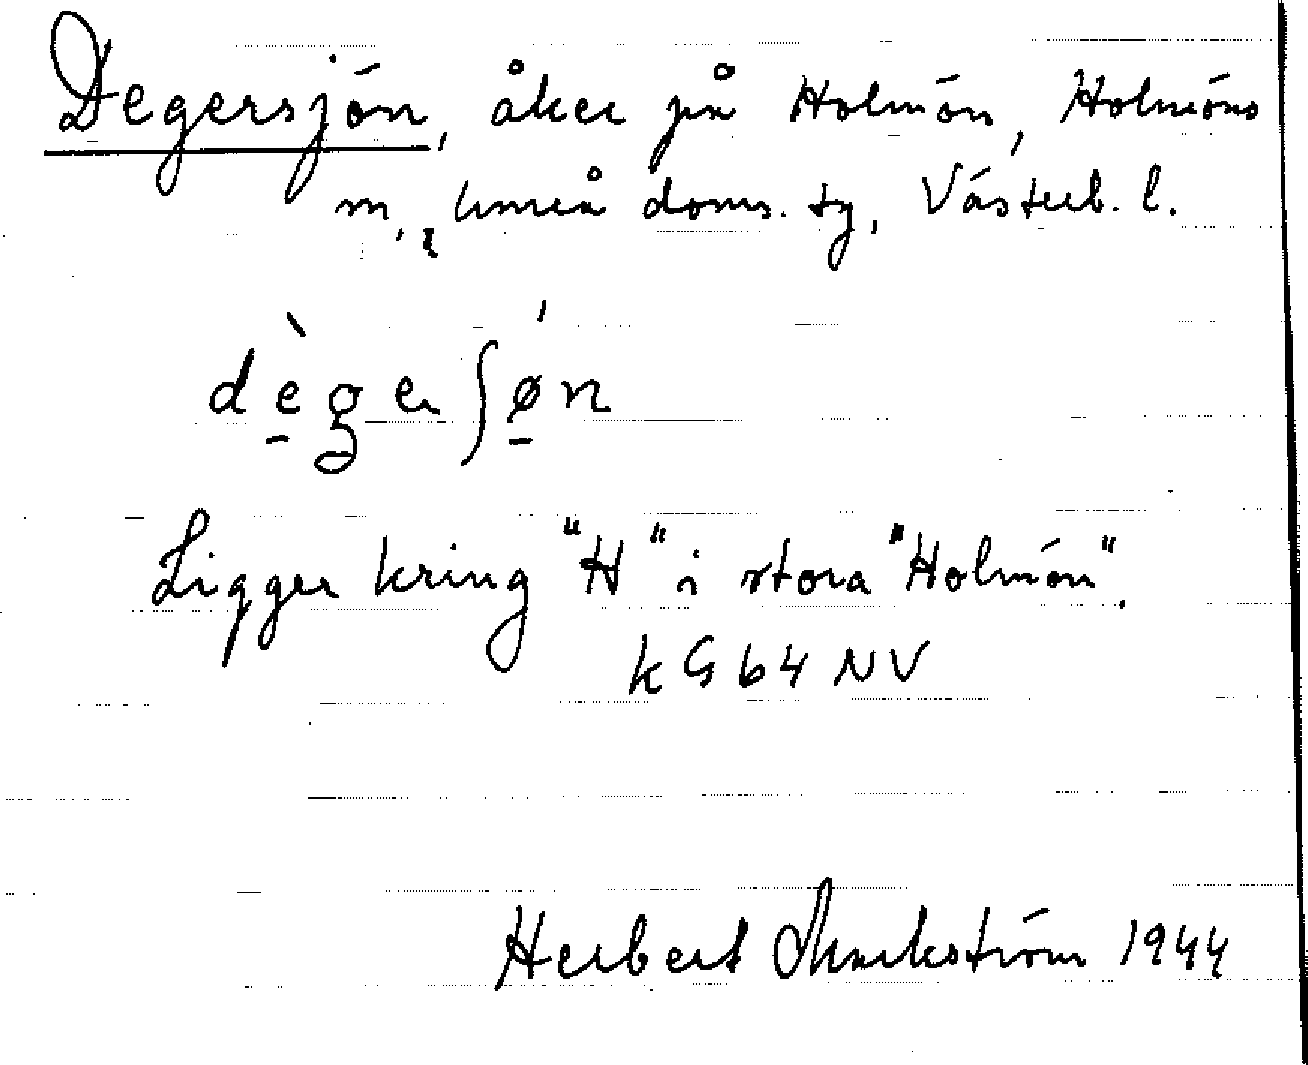 Degersjön, åker på Holmön, Holmöns
m., Umeå doms. tg, Västerb. l.
dè̱gerʃǿ̱n
Ligger kring "H" i stora "Holmön".
k G 64 NV
Herbert Markström 1944